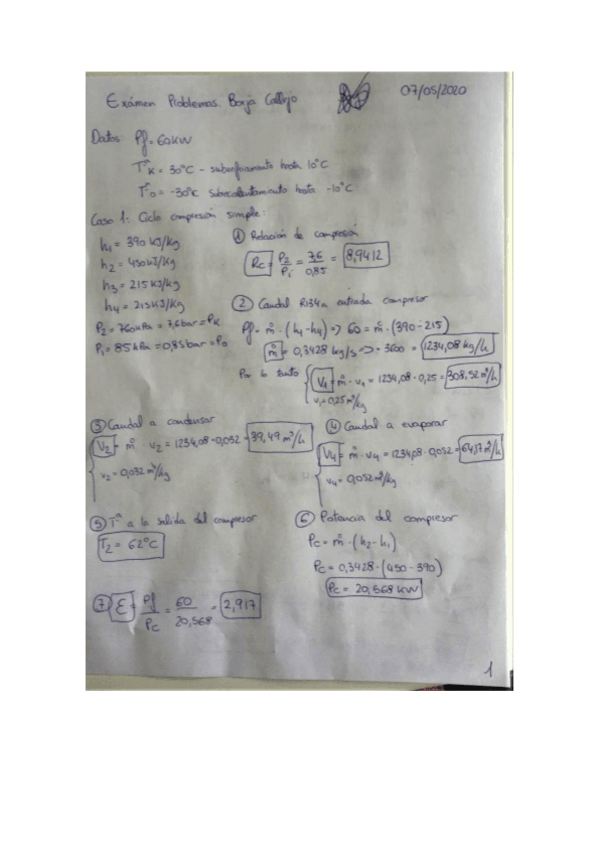 Exámen Problemas. Borja Callejo
07/05/2020
Datos: Pf = 60KW
Tª K = 30°C - subenfriamiento hasta 10°C
Tª o = -30°C subrecalentamiento hasta -10°C
Caso 1: Ciclo compresión simple:
h1 = 390 KJ/Kg
h2 = 450 KJ/Kg
h3 = 215 KJ/Kg
h4 = 215 KJ/Kg
P2 = 760 kPa = 7,6 bar = PK
P1 = 85 kPa = 0,85 bar = Po
① Relación de compresión
Rc = P2/P1 = 7,6/0,85 = 8,9412
② Caudal R134a entrada compresor
Pf = ṁ · (h1-h4) => 60 = ṁ · (390-215)
ṁ = 0,3428 kg/s => · 3600 = 1234,08 kg/h
Por lo tanto V1 = ṁ · v1 = 1234,08 · 0,25 = 308,52 m³/h
v1 = 0,25 m³/kg
③ Caudal a condensar
V2 = ṁ · v2 = 1234,08 · 0,032 = 39,49 m³/h
v2 = 0,032 m³/kg
④ Caudal a evaporar
V4 = ṁ · v4 = 1234,08 · 0,052 = 64,17 m³/h
v4 = 0,052 m³/kg
⑤ Tª a la salida del compresor
T2 = 62°C
⑥ Potencia del compresor
Pc = ṁ · (h2-h1)
Pc = 0,3428 · (450 - 390)
Pc = 20,568 KW
⑦ E = Pf/Pc = 60/20,568 = 2,917
1